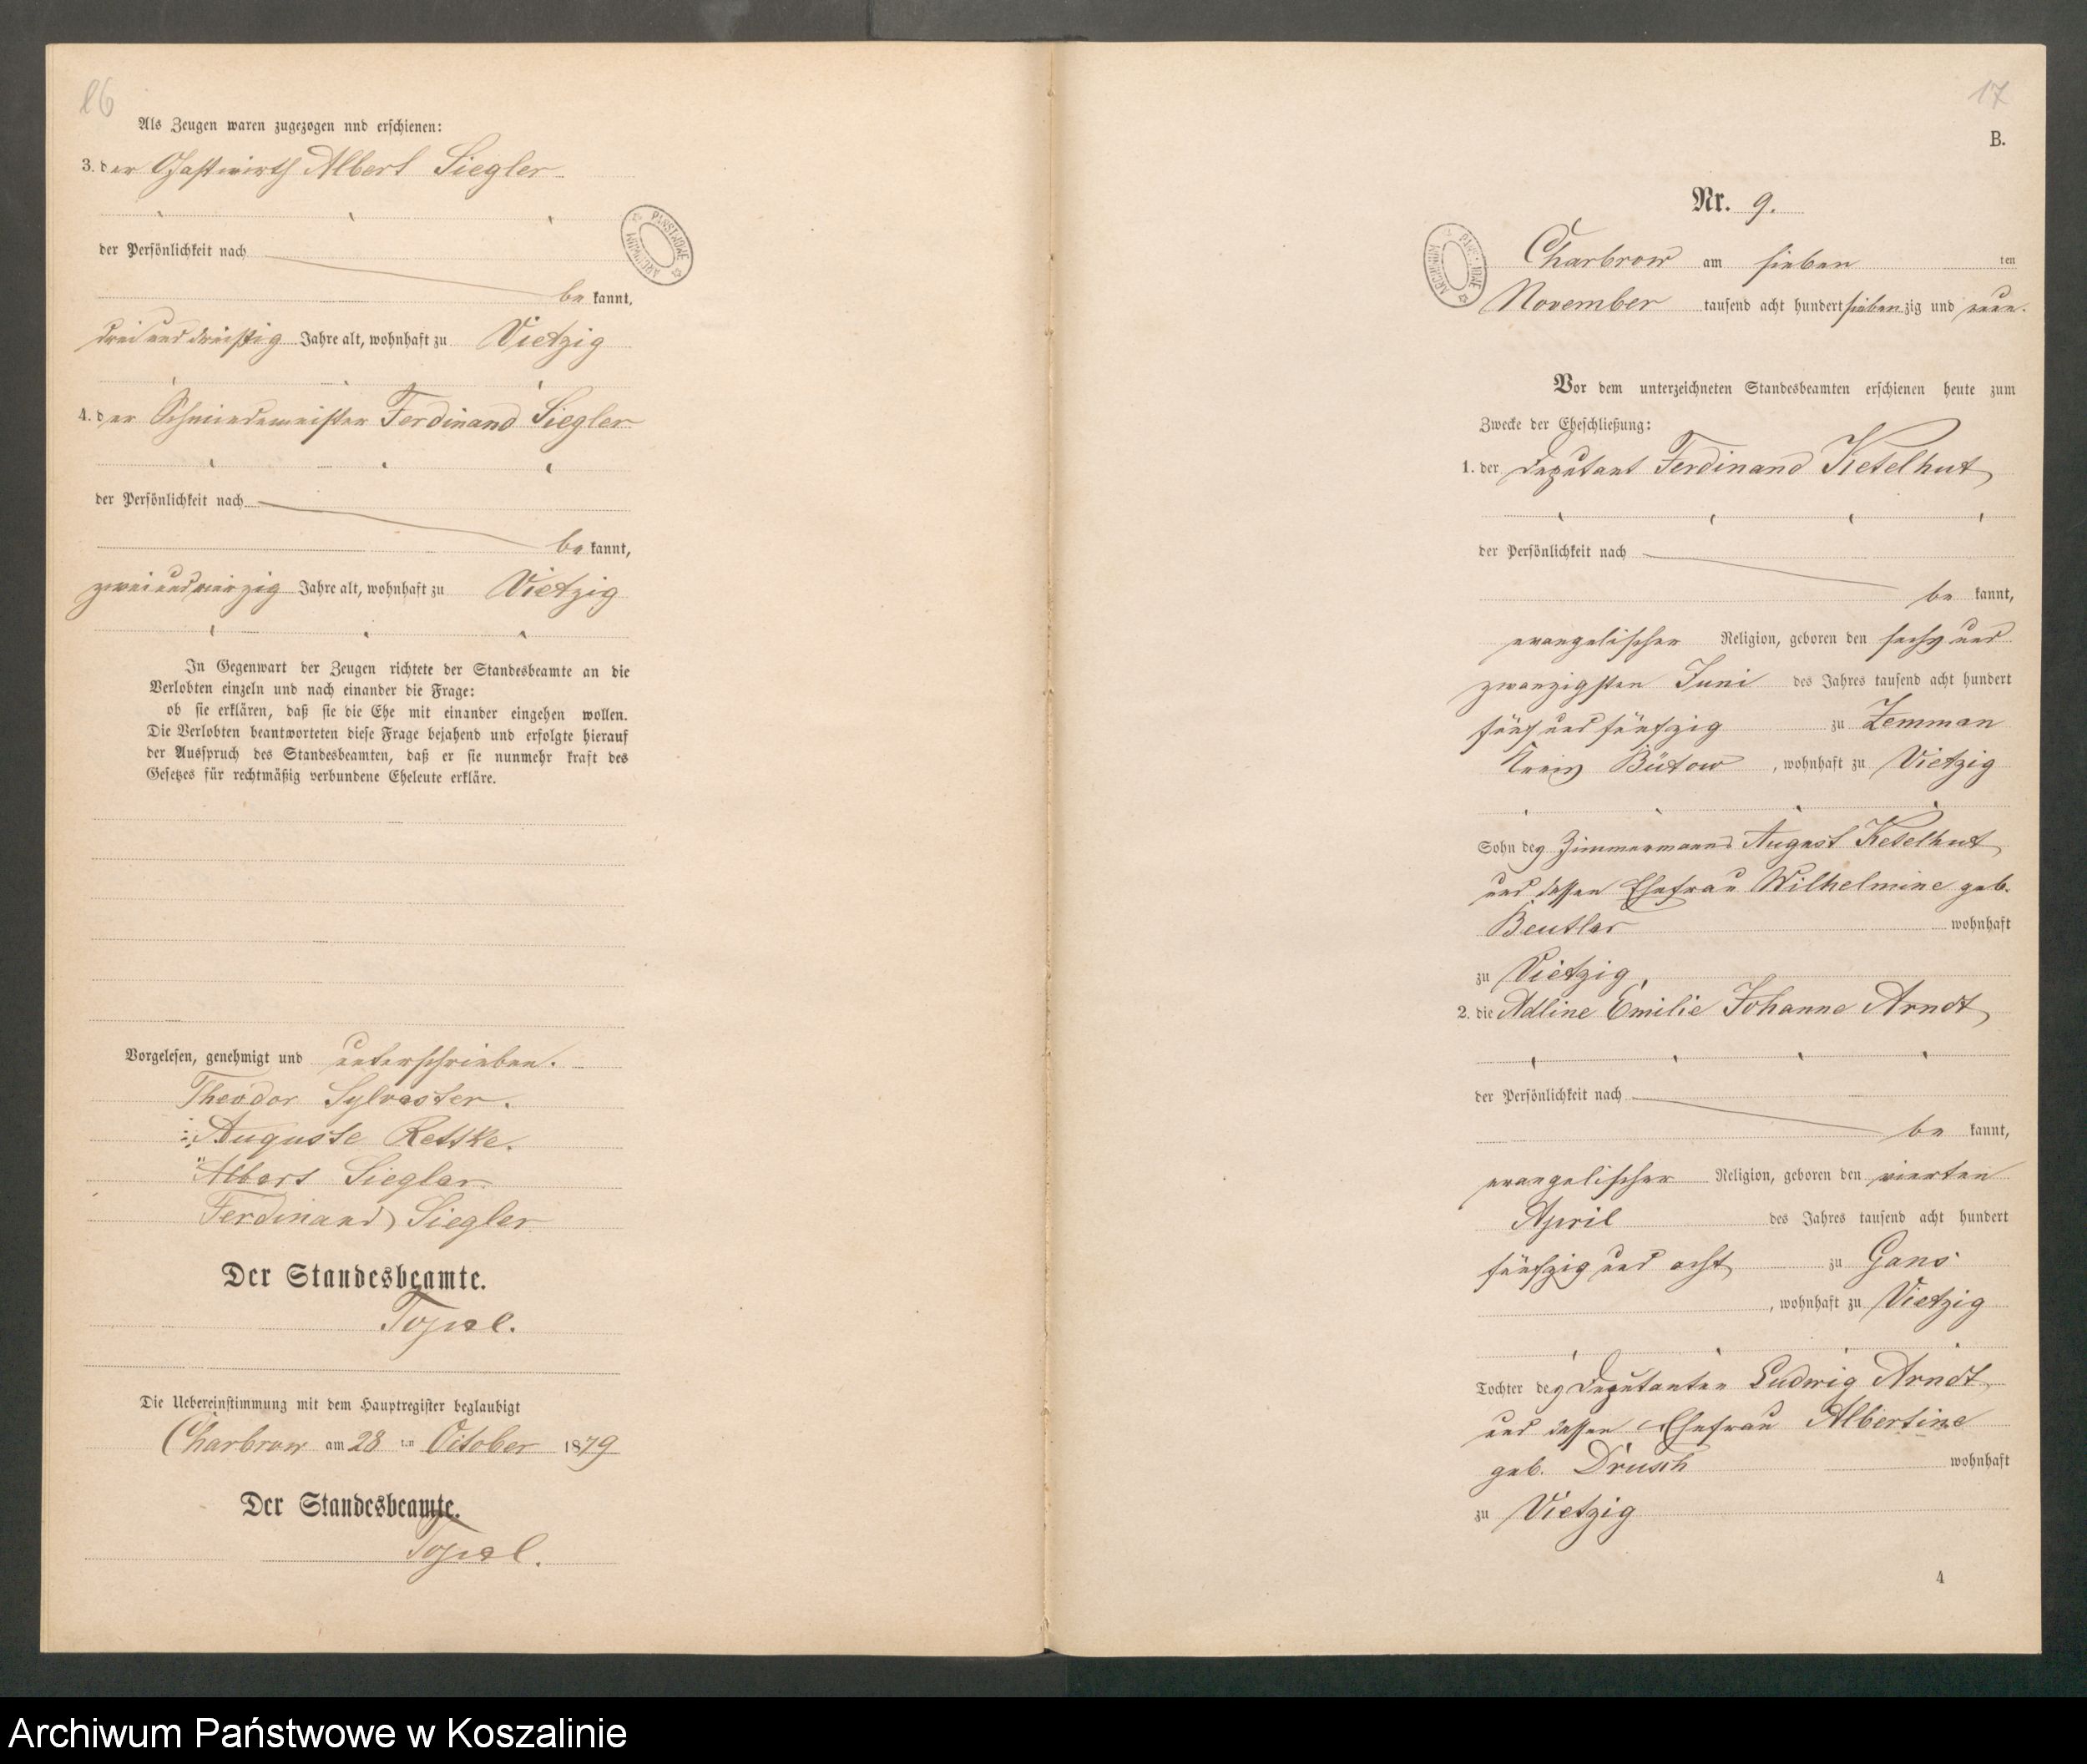 16
Als Zeugen waren zugezogen nnd erschienen:
3. der Gastwirth Albert Siegler
der Persönlichkeit nach
be kannt,
drei und dreißig Jahre alt, wohnhaft zu Vietzig
4. der Schmiedemeister Ferdinand Siegler
der Persönlichkeit nach
be kannt,
zwei und vierzig Jahre alt, wohnhaft zu Vietzig
In Gegenwart der Zeugen richtete der Standesbeamte an die
Verlobten einzeln und nach einander die Frage:
ob sie erklären, daß sie die Ehe mit einander eingehen wollen.
Die Verlobten beantworteten diese Frage bejahend und erfolgte hierauf
der Ausspruch des Standesbeamten, daß er sie nunmehr kraft des
Gesetzes für rechtmäßig verbundene Eheleute erkläre.
Vorgelesen, genehmigt und unterschrieben.
Theodor Sylvester.
Auguste Retzke.
Albert Siegler
Ferdinand Siegler
Der Standesbeamte.
Topel.
Die Uebereinstimmung mit dem Hauptregister beglaubigt
Charbrow am 28 ten October 1879
Der Standesbeamte.
Topel.
ARCHIWUM PAŃSTWOWE
17
B.
Nr. 9.
ARCHIWUM PAŃSTWOWE
Charbrow am sieben ten
November tausend acht hundert sieben zig und neun.
Vor dem unterzeichneten Standesbeamten erschienen heute zum
Zwecke der Eheschließung:
1. der Deputant Ferdinand Ketelhut,
der Persönlichkeit nach
be kannt,
evangelischer Religion, geboren den sechs und
zwanzigsten Juni des Jahres tausend acht hundert
fünf und fünfzig zu Zemman
Kreis Bütow, wohnhaft zu Vietzig
Sohn des Zimmermanns August Ketelhut
und dessen Ehefrau Wilhelmine geb.
Beutler wohnhaft
zu Vietzig,
2. die Adline Emilie Johanne Arndt,
der Persönlichkeit nach
be kannt,
evangelischer Religion, geboren den vierten
April des Jahres tausend acht hundert
fünfzig und acht zu Gans
, wohnhaft zu Vietzig
Tochter des Deputanten Ludwig Arndt
und dessen Ehefrau Albertine
geb. Drusch wohnhaft
zu Vietzig
4
Archiwum Państwowe w Koszalinie